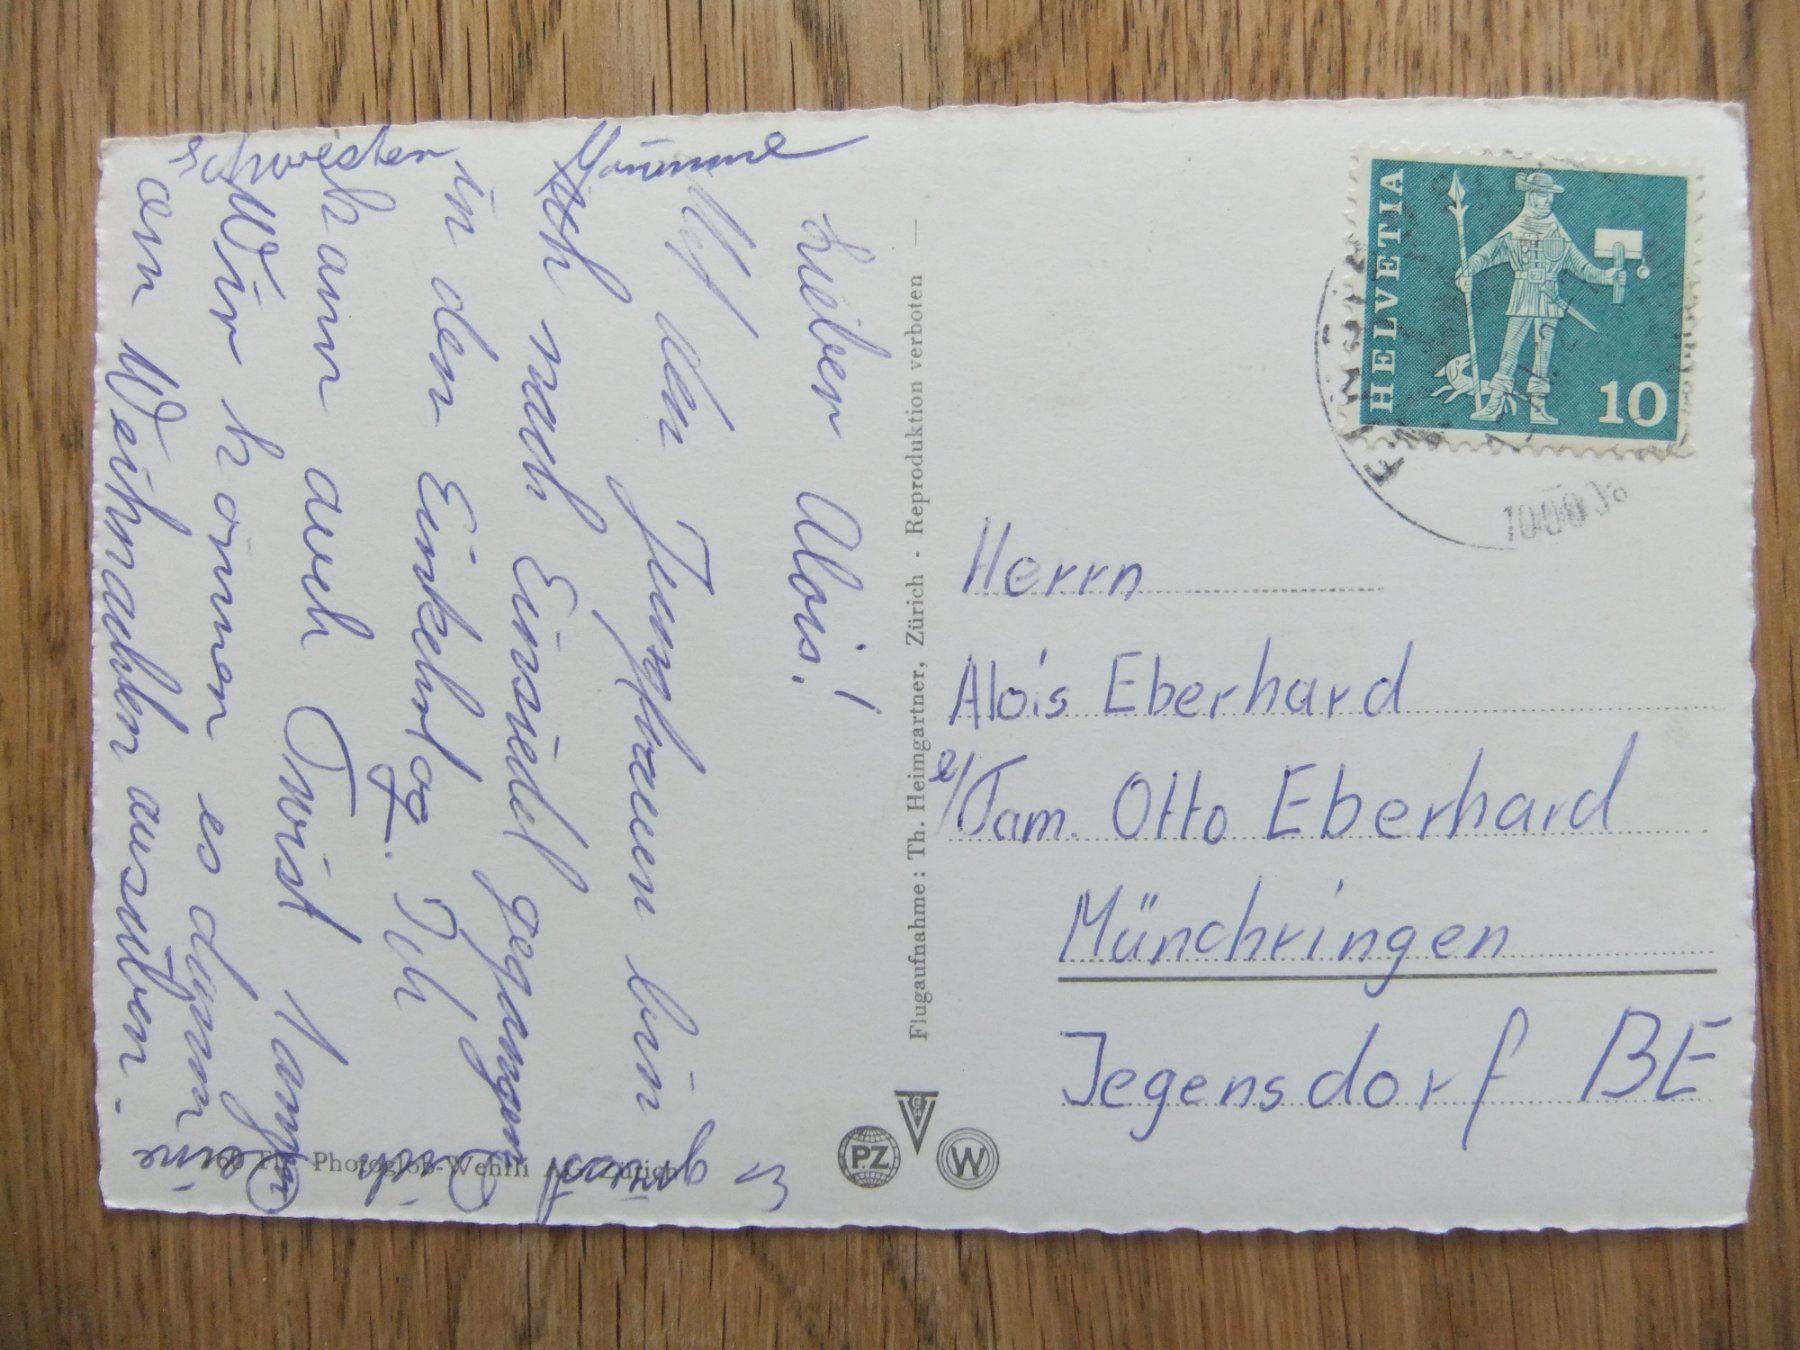 Lieber Alois!
Mit den Jungfrauen bin
ich nach Einsiedel gegangen
in den Einkehrtag. Ich
kann auch Twist tanzen
Wir können es dann
an Weihnachten ausüben.
Es grüsst
Dich
Deine
Schwester
Flugaufnahme: Th. Heimgartner, Zürich - Reproduktion verboten
Photoglob-Wehrli AG, Zürich
PZ
W
HELVETIA
10
Herrn
Alois Eberhard
Fam. Otto Eberhard
Münchringen
Jegensdorf BE